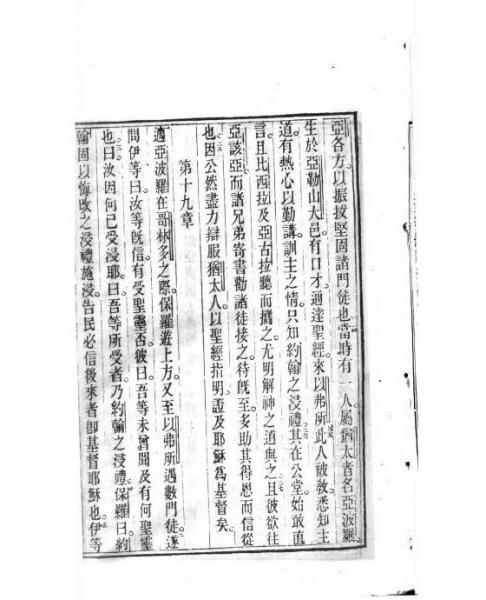 亞各方。以振拔堅固諸門徒也。當時有一人屬猶太者名亞波羅
生於亞勒山大邑。有口才。通達聖經。來以弗所。此人被教。悉知主
道有熱心以勤講訓主之情。只知約翰之浸禮。其在公堂始敢直
言。且比西拉及亞古拉聽而攜之。尤明解神之道與之。且彼欲往
亞該亞。而諸兄弟寄書勸諸徒接之待。旣至多助其得恩而信從
也。因公然盡力辯服猶太人。以聖經指明。證及耶穌爲基督矣。
第十九章
適亞波羅在哥林多之際。保羅遊上方。又至以弗所。遇數門徒。遂
問伊等曰。汝等旣信。有受聖靈否。彼曰。吾等未曾聞及有何聖靈
也。曰。汝因何已受浸耶。曰。吾等所受者。乃約翰之浸禮。保羅曰。約
翰固以悔改之浸禮施浸。告民必信後來者。卽基督耶穌也。伊等